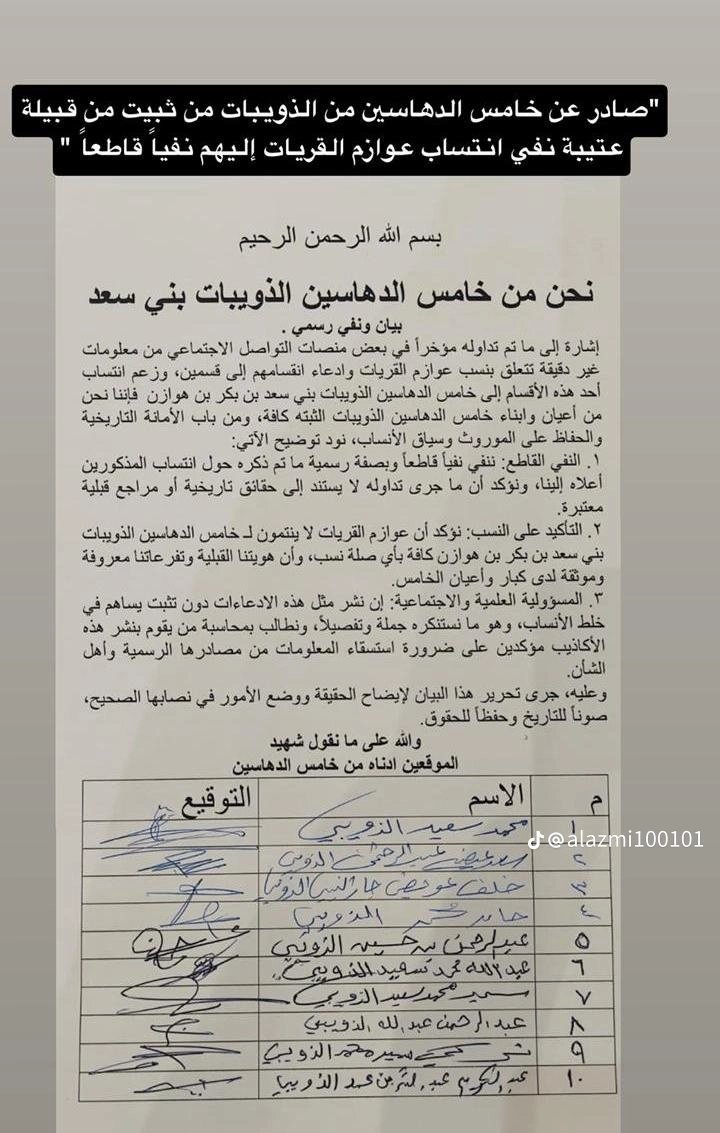 "صادر عن خامس الدهاسين من الذويبات من ثبيت من قبيلة
عتيبة نفي انتساب عوازم القريات إليهم نفياً قاطعاً "
بسم الله الرحمن الرحيم
نحن من خامس الدهاسين الذويبات بني سعد
بيان ونفي رسمي .
إشارة إلى ما تم تداوله مؤخراً في بعض منصات التواصل الاجتماعي من معلومات
غير دقيقة تتعلق بنسب عوازم القريات وادعاء انقسامهم إلى قسمين، وزعم انتساب
أحد هذه الأقسام إلى خامس الدهاسين الذويبات بني سعد بن بكر بن هوازن فإننا نحن
من أعيان وابناء خامس الدهاسين الذويبات الثبته كافة، ومن باب الأمانة التاريخية
والحفاظ على الموروث وسياق الأنساب، نود توضيح الآتي:
١. النفي القاطع: ننفي نفياً قاطعاً وبصفة رسمية ما تم ذكره حول انتساب المذكورين
أعلاه إلينا، ونؤكد أن ما جرى تداوله لا يستند إلى حقائق تاريخية أو مراجع قبلية
معتبرة.
٢. التأكيد على النسب: نؤكد أن عوازم القريات لا ينتمون لـ خامس الدهاسين الذويبات
بني سعد بن بكر بن هوازن كافة بأي صلة نسب، وأن هويتنا القبلية وتفرعاتنا معروفة
وموثقة لدى كبار وأعيان الخامس.
٣. المسؤولية العلمية والاجتماعية: إن نشر مثل هذه الادعاءات دون تثبت يساهم في
خلط الأنساب، وهو ما نستنكره جملة وتفصيلاً، ونطالب بمحاسبة من يقوم بنشر هذه
الأكاذيب مؤكدين على ضرورة استسقاء المعلومات من مصادرها الرسمية وأهل
الشأن.
وعليه، جرى تحرير هذا البيان لإيضاح الحقيقة ووضع الأمور في نصابها الصحيح،
صوناً للتاريخ وحفظاً للحقوق.
والله على ما نقول شهيد
الموقعين ادناه من خامس الدهاسين
م الاسم التوقيع
١ محمد سعيد الذويبي
@alazmi100101
٢ سعد عيضه عبدالرحمن الذويبي
٣ خلف عويض جارالنبي الذويبي
٤ حامد محمد الذويبي
٥ عبدالرحمن بن حسين الذويبي
٦ عبدالله محمد سعيد الذويبي
٧ سمير محمد سعيد الذويبي
٨ عبدالرحمن عبدالله الذويبي
٩ محمد الذويبي
١٠ عبدالكريم الذويبي